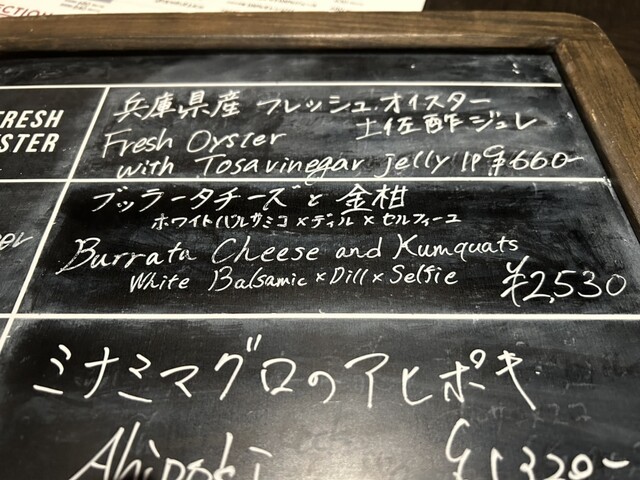 FRESH
兵庫県産 フレッシュ・オイスター
土佐酢ジュレ
Fresh Oyster
with Tosavinegar jelly 1P ¥660-
ブッラータチーズと 金柑
ホワイトバルサミコ×ディル×セルフィーユ
Burrata Cheese and Kumquats
White Balsamic×Dill×Selfie
¥2,530
ミナミマグロのアヒポキ
Ahipoki ¥1,320-